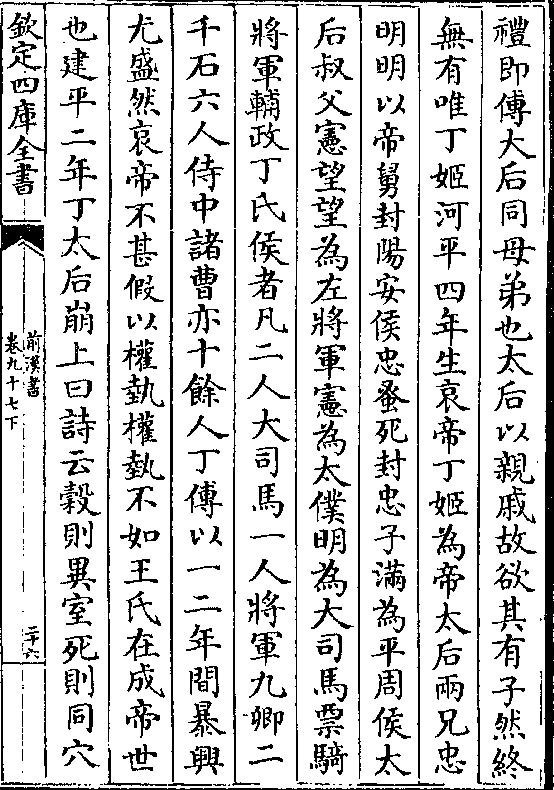 禮即傅太后同母弟也太后以親戚故欲其有子然終
無有唯丁姬河平四年生哀帝丁姬為帝太后兩兄忠
明明以帝舅封陽安侯忠蚤死封忠子滿為平周侯太
后叔父憲望望為左將軍憲為太僕明為大司馬票騎
將軍輔政丁氏侯者凡二人大司馬一人將軍九卿二
千石六人侍中諸曹亦十餘人丁傅以一二年間暴興
尤盛然哀帝不甚假以權埶權埶不如王氏在成帝世
也建平二年丁太后崩上曰詩云榖則異室死則同穴
欽定四庫全書
前漢書
卷九十七下
二十六